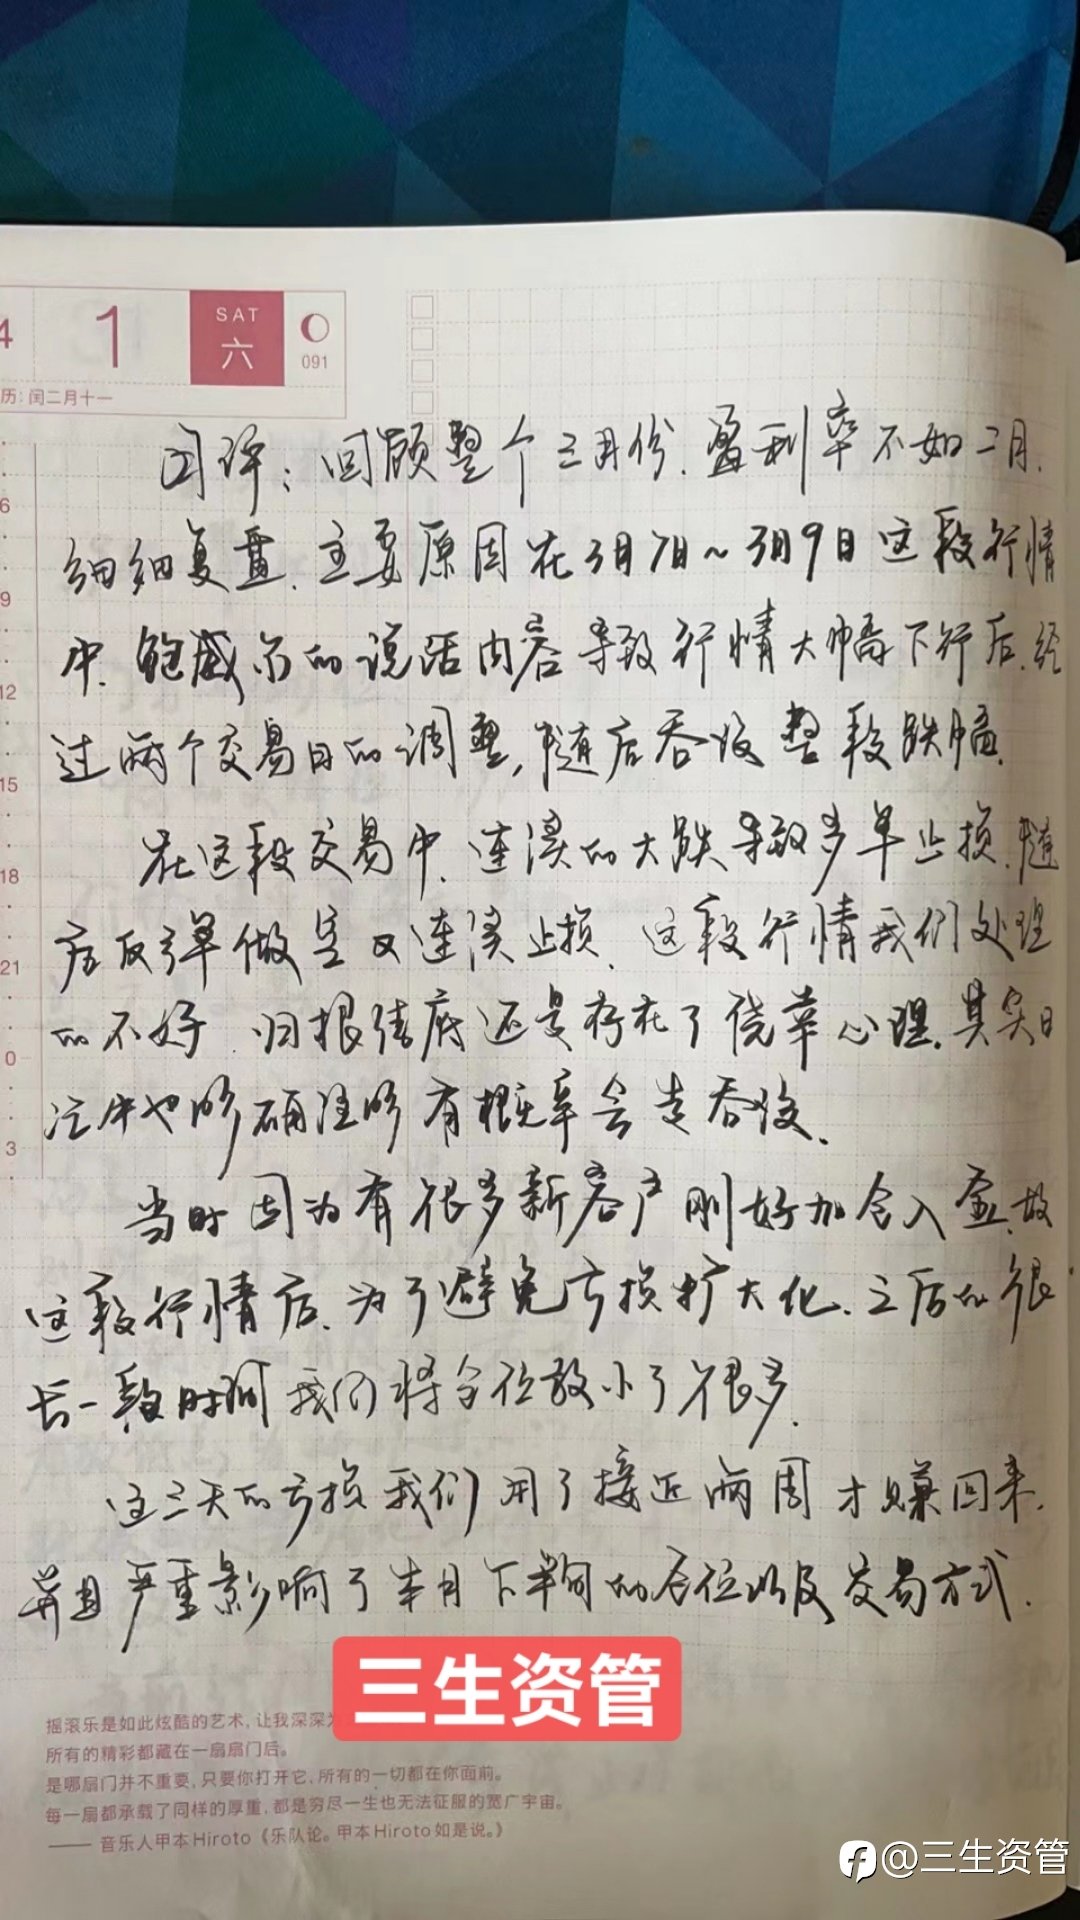 4
1
SAT
六
091
历: 闰二月十一
6
9
12
15
18
21
0
3
回评：回顾整个三月份.盈利率不如二月.
细细复盘.主要原因在3月7日～3月9日这段行情
中.鲍威尔的说话内容导致行情大幅下行后.经
过两个交易日的调整,随后吞没整段跌幅.
在这段交易中.连续的大跌导致多单止损.随
后反弹做空又连续止损.这段行情我们处理
的不好.归根结底还是存在了侥幸心理.其实日
评中也够确证够有概率会走吞没.
当时因为有很多新客户刚好加仓入金.故
这段行情后.为了避免亏损扩大化.之后的很
长一段时间我们将仓位放小了很多.
这三天的亏损我们用了接近两周才赚回来.
并且严重影响了本月下半旬的仓位以及交易方式.
三生资管
摇滚乐是如此炫酷的艺术, 让我深深为
所有的精彩都藏在一扇扇门后。
是哪扇门并不重要, 只要你打开它, 所有的一切都在你面前。
每一扇都承载了同样的厚重, 都是穷尽一生也无法征服的宽广宇宙。
—— 音乐人甲本Hiroto《乐队论。甲本Hiroto如是说。》
@三生资管